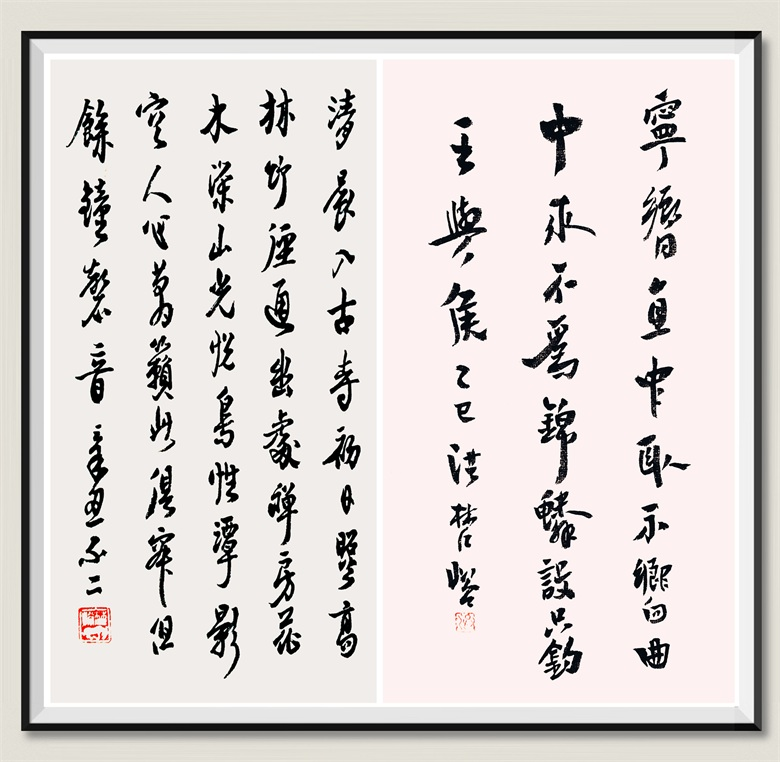 寧嚮直中取不嚮曲
中求不爲錦鱗設只釣
王與侯乙巳洪哲峪
清晨入古寺初日照高
林竹徑通幽處禪房花
木深山光悅鳥性潭影
空人心萬籟此俱寂但
餘鐘磬音辛丑不二